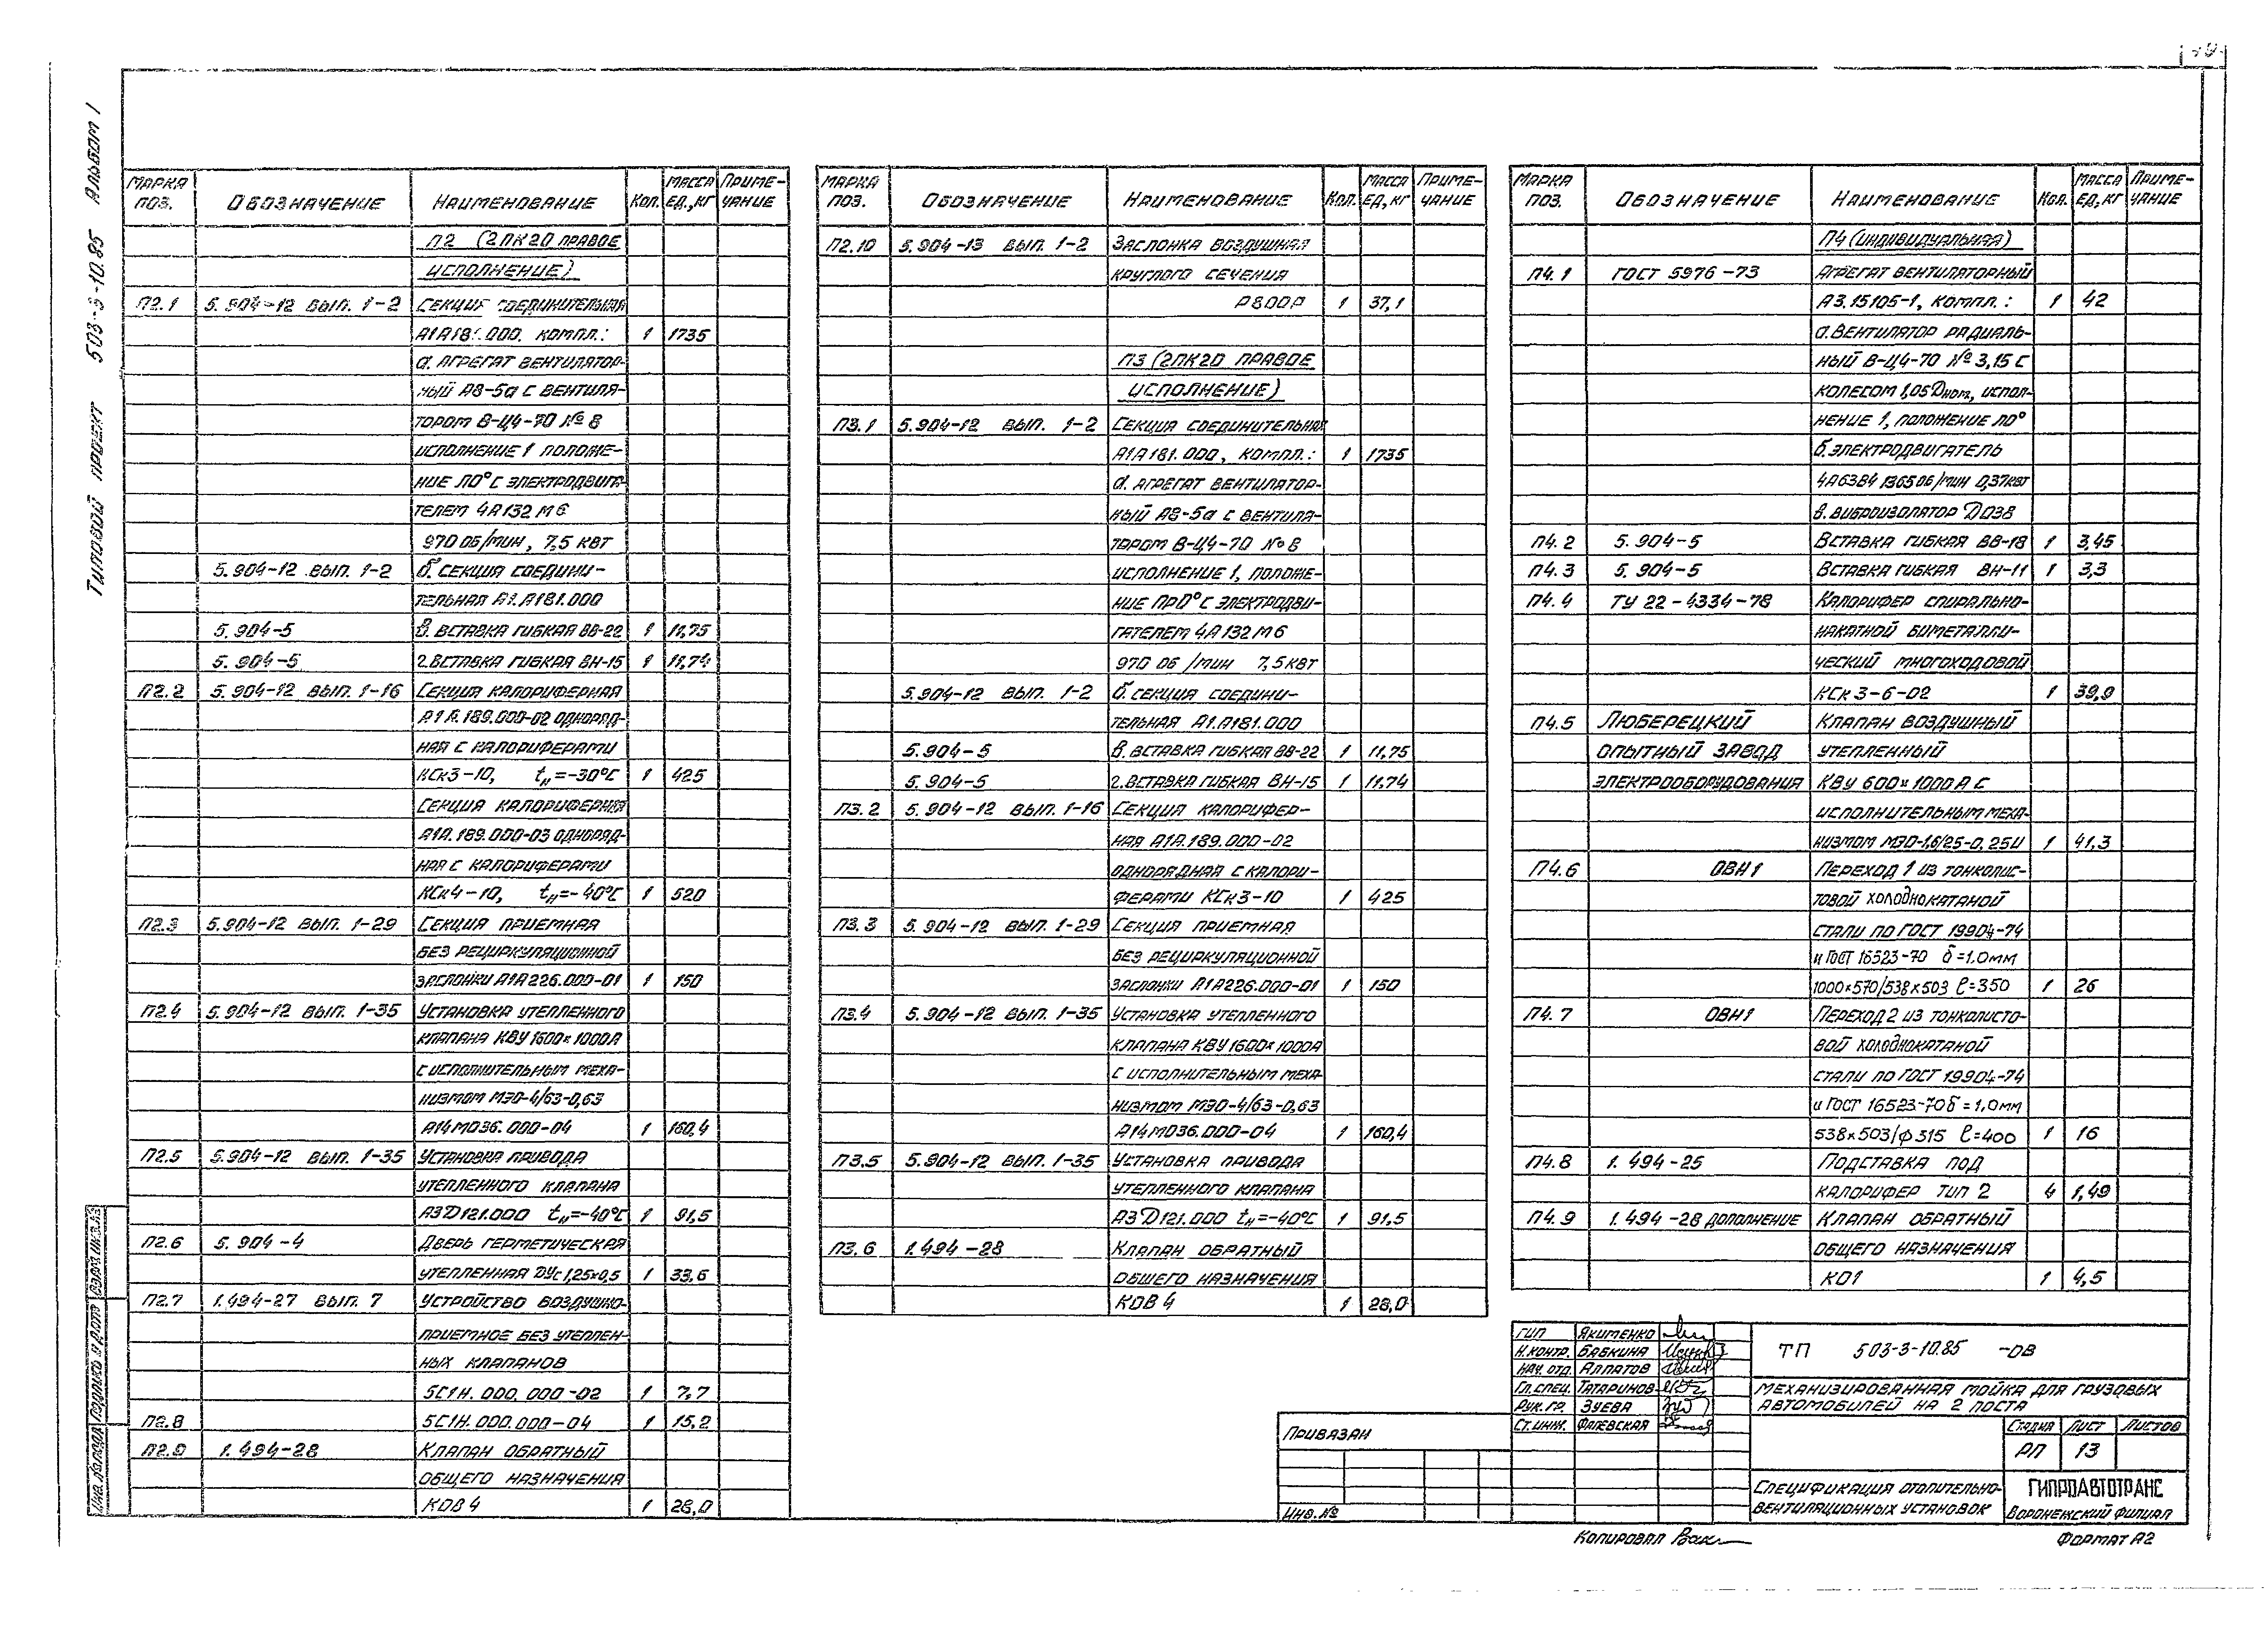 Типовой проект 503-3-10.85 Альбом 1
Марка поз. Обозначение Наименование Кол. Масса ед., кг Примечание
П2 (2ПК20 правое
исполнение)
П2.1 5.904-12 вып. 1-2 Секция соединительная
А1А181.000. компл.: 1 1735
а. агрегат вентилятор-
ный А8-5а с вентиля-
тором В-Ц4-70 № 8
исполнение 1 положе-
ние Л0° с электродвига-
телем 4А132М6
970 об/мин, 7,5 квт
5.904-12 вып. 1-2 б. секция соедини-
тельная А1.А181.000
5.904-5 в. вставка гибкая ВВ-22 1 11,75
5.904-5 г. вставка гибкая ВН-15 1 11,74
П2.2 5.904-12 вып. 1-16 Секция калориферная
А1А.189.000-02 одноряд-
ная с калориферами
КСк3-10, tн=-30°С 1 425
Секция калориферная
А1А.189.000-03 одноряд-
ная с калориферами
КСк4-10, tн=-40°С 1 520
П2.3 5.904-12 вып. 1-29 Секция приемная
без рециркуляционной
заслонки А1А226.000-01 1 150
П2.4 5.904-12 вып. 1-35 Установка утепленного
клапана КВУ 1600×1000А
с исполнительным меха-
низмом МЭО-4/63-0,63
А14М036.000-04 1 160,4
П2.5 5.904-12 вып. 1-35 Установка привода
утепленного клапана
А3Д121.000 tн=-40°С 1 91,5
П2.6 5.904-4 Дверь герметическая
утепленная ДУс 1,25×0,5 1 33,6
П2.7 1.494-27 вып. 7 Устройство воздухо-
приемное без утеплен-
ных клапанов
5С1Н.000.000-02 1 7,7
П2.8 5С1Н.000.000-04 1 15,2
П2.9 1.494-28 Клапан обратный
общего назначения
КОВ 4 1 28,0
Марка поз. Обозначение Наименование Кол. Масса ед., кг Примечание
П2.10 5.904-13 вып. 1-2 Заслонка воздушная
круглого сечения
Р800Р 1 37,1
П3 (2ПК20 правое
исполнение)
П3.1 5.904-12 вып. 1-2 Секция соединительная
А1А181.000, компл.: 1 1735
а. агрегат вентилятор-
ный А8-5а с вентиля-
тором В-Ц4-70 № 8
исполнение 1, положе-
ние Пр0° с электродви-
гателем 4А132М6
970 об/мин 7,5 квт
5.904-12 вып. 1-2 б. секция соедини-
тельная А1.А181.000
5.904-5 в. вставка гибкая ВВ-22 1 11,75
5.904-5 г. вставка гибкая ВН-15 1 11,74
П3.2 5.904-12 вып. 1-16 Секция калорифер-
ная А1А.189.000-02
однорядная с калори-
ферами КСк3-10 1 425
П3.3 5.904-12 вып. 1-29 Секция приемная
без рециркуляционной
заслонки А1А226.000-01 1 150
П3.4 5.904-12 вып. 1-35 Установка утепленного
клапана КВУ 1600×1000А
с исполнительным меха-
низмом МЭО-4/63-0,63
А14М036.000-04 1 160,4
П3.5 5.904-12 вып. 1-35 Установка привода
утепленного клапана
А3Д121.000 tн=-40°С 1 91,5
П3.6 1.494-28 Клапан обратный
общего назначения
КОВ 4 1 28,0
Марка поз. Обозначение Наименование Кол. Масса ед., кг Примечание
П4 (индивидуальная)
П4.1 ГОСТ 5976-73 Агрегат вентиляторный
А3.15105-1, компл.: 1 42
а. Вентилятор радиаль-
ный В-Ц4-70 № 3,15 с
колесом 1,05 Дном, испол-
нение 1, положение Л0°
б. электродвигатель
4А63В4 1365 об/мин 0,37квт
в. виброизолятор Д038
П4.2 5.904-5 Вставка гибкая ВВ-18 1 3,45
П4.3 5.904-5 Вставка гибкая ВН-11 1 3,3
П4.4 ТУ 22-4334-78 Калорифер спирально-
накатной биметалли-
ческий многоходовой
КСк 3-6-02 1 39,9
П4.5 Люберецкий Клапан воздушный
опытный завод утепленный
электрооборудования КВУ 600×1000А с
исполнительным меха-
низмом МЭО-1,6/25-0,25И 1 41,3
П4.6 ОВН1 Переход 1 из тонколис-
товой холоднокатаной
стали по ГОСТ 19904-74
и ГОСТ 16523-70 δ=1.0мм
1000×570/538×503 ℓ=350 1 26
П4.7 ОВН1 Переход 2 из тонколисто-
вой холоднокатаной
стали по ГОСТ 19904-74
и ГОСТ 16523-70 δ=1,0мм
538×503/ф315 ℓ=400 1 16
П4.8 1.494-25 Подставка под
калорифер тип 2 4 1,49
П4.9 1.494-28 дополнение Клапан обратный
общего назначения
КО1 1 4,5
ГИП Якименко
Н.контр. Бабкина
Нач. отд. Алпатов
Гл.спец. Татаринов
Рук.гр. Зуева
Ст.инж. Фалевская
ТП 503-3-10.85 -ОВ
Механизированная мойка для грузовых
автомобилей на 2 поста
Стадия Лист Листов
РП 13
Спецификация отопительно-
вентиляционных установок
ГИПРОАВТОТРАНС
Воронежский филиал
Привязан
Инв. №
Копировал
Формат А2
Инв. № подл. Подпись и дата Взам. инв. №